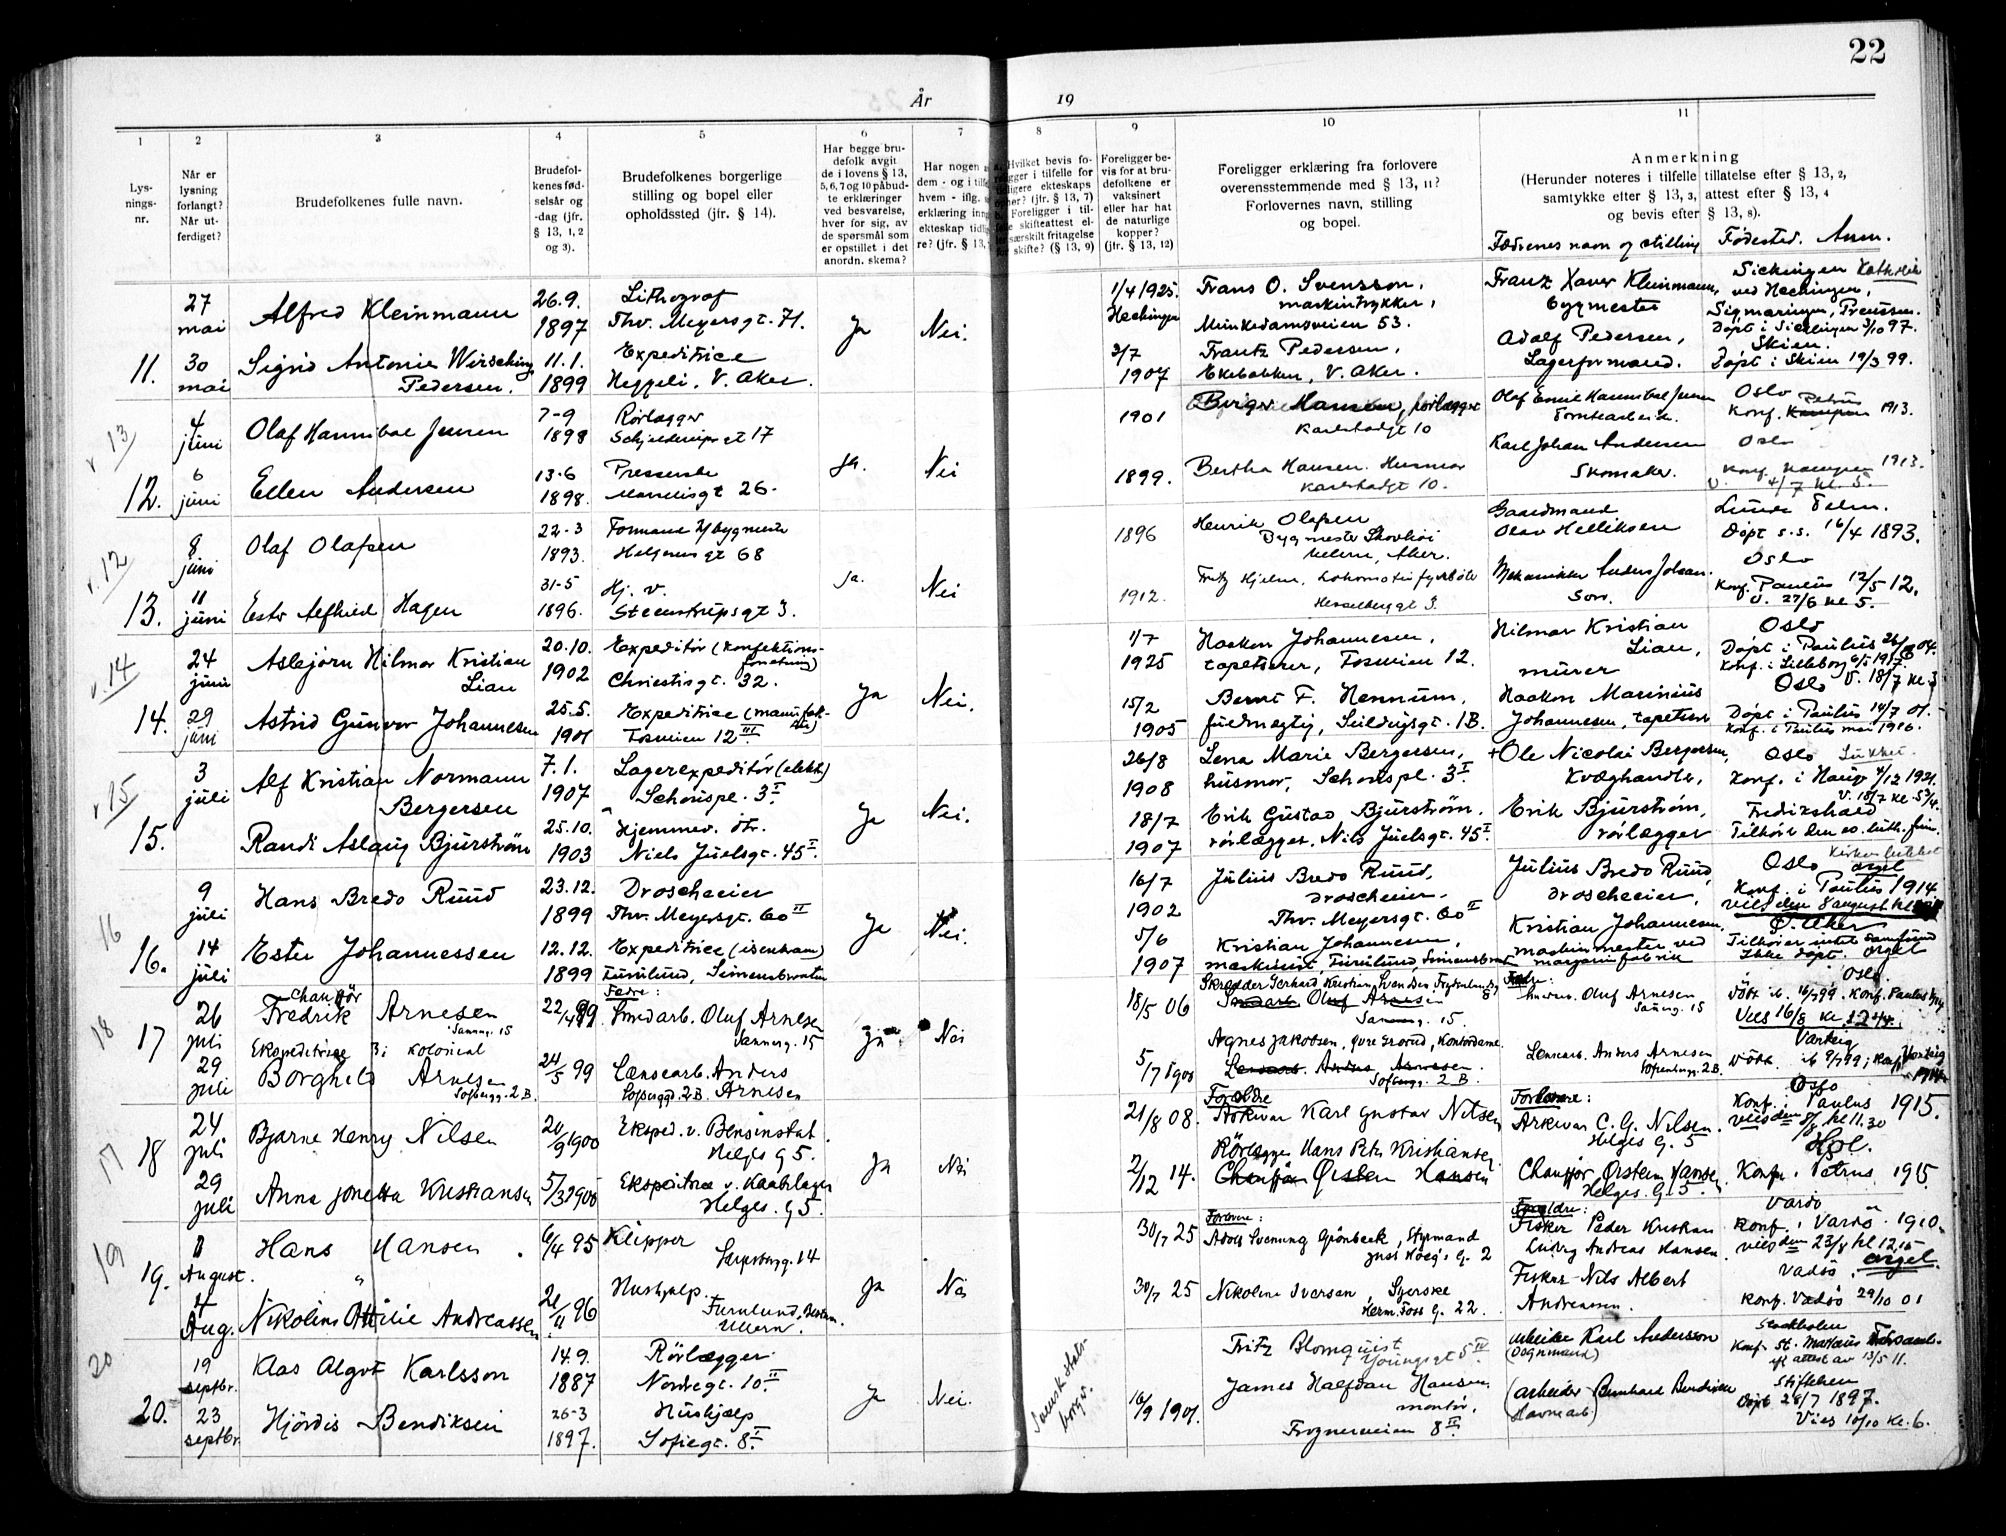 22
År 19
1 2 3 4 5 6 7 8 9 10 11
Lys-
nings-
nr.
Når er
lysning
forlangt?
Når ut-
ferdiget?
Brudefolkenes fulle navn.
Brudefol-
kenes fød-
selsår og
-dag (jfr.
§ 13, 1, 2
og 3).
Brudefolkenes borgerlige
stilling og bopel eller
opholdssted (jfr. § 14).
Har begge bru-
defolk avgit
de i lovens § 13,
5, 6, 7 og 10 påbud-
te erklæringer
ved besvarelse,
hver for sig, av
de spørsmål som
er opstillet i det
anordn. skema?
Har nogen
dem - og i
hvem - iflg.
erklæring
ekteskap
re? (jfr. § 13,
Hvilket bevis fo-
religger i tilfelle for
tidligere ekteskaps
(jfr. § 13, 7)
Foreligger i til-
skifteattest el-
særskilt fritagelse
for skifte? (§ 13, 9)
Foreligger be-
vis for at bru-
defolkene er
vaksinert
eller har hat
de naturlige
kopper?
(jfr. § 13, 12)
Foreligger erklæring fra forlovere
overensstemmende med § 13, 11?
Forlovernes navn, stilling
og bopel.
Anmerkning
(Herunder noteres i tilfelle tillatelse efter § 13, 2,
samtykke efter § 13, 3, attest efter § 13, 4
og bevis efter § 13, 8).
Fædrenes navn og stilling Fødested. Anm.
27 mai Alfred Kleinmann 26.9. 1897 Lithograf
Thv. Meyersgt. 71. Ja Nei. 1/4 1925. Hechingen
Frans O. Svensson,
maskintrykker,
Munkedamsveien 53.
Franz Xaver Kleinmann,
bygmester
Sickingen Katholik
ved Hechingen,
Sigmaringen, Preussen.
Døpt i Sickingen 3/10 97.
11. 30 mai Sigrid Antonie Wirsching
Pedersen. 11.1. 1899 Expeditrice
Heggeli, V. Aker. 3/7 1907
Frantz Pedersen,
Ekebakken, V. Aker.
Adolf Pedersen,
Lagerformand.
Skien.
Døpt i Skien 19/3 99.
v 13
4 juni Olaf Hannibal Jensen 7-9 1898 Rørlægger
Schjelderupsgt 17 1901
Birger Hansen, rørlægger
Karlstadgt 10
Olaf Emil Hannibal Jensen
Tomtearbeider.
Oslo
Konf. Petrus 1913.
12. 6 juni Ellen Andersen 13-6 1898. Presserske
26. Ja. Nei 1899.
Bertha Hansen. Husmor
Karlstadgt 10.
Karl Johan Andersen
Skomaker.
Oslo
Konf. Kampen 1913.
v. 4/7 kl. 5.
v. 12
8 juni Olaf Olafsen 22-3 1893. Formand bygmester
Helgesens gt 68 1896
Henrik Olafsen
Bygmester
Ullern, Aker.
Gaardmand
Olav Helliksen
Lunde Telem.
Døpt s.s. 16/4 1893.
13. 11 juni Ester Alfhild Hagen 31-5 1896. Hj. v.
Steenstrupsgt 3. Ja. Nei 1912.
Fritz Hjelm, Lokomotivfyrbøter
Hesselberggt 3.
Mekaniker Anders Johan
Oslo
Konf. Paulus 12/5 12.
v. 27/6 kl 5.
v. 14
24 juni Asbjørn Hilmar Kristian
Lian 20.10. 1902 Expeditør (Konfektions-
forretning)
Christiesgt. 32. 1/7 1925
Haakon Johannesen,
tapetserer, Fosveien 12.
Hilmar Kristian
Lian,
murer
Oslo
Døpt i Paulus
Konf. i Lilleborg
v. 18/7 kl 3
14. 29 juni Astrid Gunvor Johannesen 25.5. 1901 Expeditrice (manufak-
tur)
Fosveien 12 III. Ja Nei. 15/2 1905
Bernt F. Hennum,
fuldmægtig, 1B.
Haakon Marinius
Johannesen, tapetserer
Oslo
Døpt i Paulus 14/7 01.
Konf. i Paulus mai 1916.
v 15
3 juli Alf Kristian Normann
Bergersen 7.1. 1907 Lagerexpeditør (elekt.)
Schouspl. 3 I. 26/8 1908
Lena Marie Bergersen,
husmor, Schouspl. 3 I.
+ Ole Nicolai Bergersen,
Kvæghandler,
Oslo
Konf. i Hauge 4/12 1921.
v. 18/7 kl 5 3/4.
15. Randi Aslaug Bjurstrøm 25.10. 1903 Hjemmev. dtr.
Niels Juelsgt. 45 I. Ja Nei. 18/7 1907
Erik Gustav Bjurstrøm.
rørlægger. Nils Juelsgt. 45 I
Erik Bjurstrøm,
rørlægger
Fredrikshald
Tilhører den ev. luth. frim.
16
9 juli Hans Bredo Ruud 23.12. 1899 Droscheeier
Thv. Meyersgt. 60 II 16/7 1902
Julius Bredo Ruud,
Droscheeier.
Thv. Meyersgt. 60 II
Julius Bredo Ruud,
Droscheeier,
Oslo
orgel
Konf. i Paulus 1914
vies den 8 august kl
16. 14 juli Ester Johannessen 12.12. 1899 Expeditrice (isenkram)
Furulund, Simensbraaten Ja Nei. 5/6 1907
Kristian Johannesen,
maskinist, Furulund, Simensbraaten
Kristian Johannesen,
maskinmester ved
margarinfabrik
Ø. Aker
Tilhører intet samfund
Ikke døpt. orgel
18
26 juli Chauffør
Fredrik Arnesen
Sannerg. 15 22/4 99 Fædre:
Smedarb. Oluf Arnesen
Sannerg. 15 18/5 06
Skrædder Gerhard Kristian Svendsen,
Smedarb. Oluf Arnesen
Sannerg. 15.
Fædre:
Oluf Arnesen
Sannerg. 15
Oslo.
Døbt Konf. Paulus
Vies 16/8 kl 12 1/4.
17 29 juli Ekspeditrice i kolonial
Borghild Arnesen
Sofienbergg. 2B 24/5 99 Lænsearb. Anders
Arnesen Ja Nei 5/7 1900
Agnes Jakobsen, øvre Grorud, Kontordame.
Lænsearb. Anders Arnesen.
Sofienbergg. 2B.
Lænsearb. Anders Arnesen
Sofienbergg. 2B.
Varteig
Døbt Konf. Varteig
1914
17
24 juli Bjarne Henry Nilsen 20/9 1900 Eksped. v. Bensinstat.
Helges G 5. 21/8 08.
Forældre
Arkivar Karl Gustav Nilsen
Forlovere:
Arkivar C. G. Nilsen.
Helges G. 5
Oslo
Konf. i Paulus 1915.
vies den 8/8 kl 11.30
18 29 juli Anna Jonetta Kristiansen 5/3 1900 Ekspeditrice v. Kaabelager
Helges. G 5. Ja Nei 2/12 14.
Rørlægger Hans Petr Kristiansen
Chauffør Øistein Hansen
Chauffør Øistein Hansen
Helges. G. 5.
Hol.
Konf. i Petrus 1915.
19
8 August. Hans Hansen. 6/4 95 Klipper
Sarpsborgg. 14 30/7 25
Forlovere:
Adolf Svenning Grönbeck, Styrmand
Just Høegs G. 2
Forældre:
Fisker Peder Kristian
Ludvig Andreas Hansen.
Vardö
Konf. i Vardö 1910.
vies den 23/8 kl 12,15
orgel.
19. 14 Aug. Nikoline Ottilie Andreassen 21/11 96 Hushjelp.
Furulund,
Ullern. Ja Nei 30/7 25
Nikoline Iversen, Syerske
Herm. Foss G. 22.
Fisker Nils Albert
Andreassen.
Vadsö.
Konf. Vadsö 29/10 01
20
19 septbr. Klas Algot Karlsson 14.9. 1887 Rørlægger
Nordregt. 10 II.
Svensk stats-
borger.
Fritz Blomquist
Youngsgt 5 IV
Arbeider Karl Andersson
(Dagmand)
Stockholm
Konf. St. Mateus
attest av 13/5 11.
20. 23 septbr. Hjördis Bendiksen 26-3 1897. Hushjælp
Sofiegt. 8 I. Ja Nei. 16/9 1901.
James Halfdan Hansen
montør,
Frognerveien 8 II.
(arbeider Bernhard Bendiksen
Havnearb.)
Døpt 28/7 1897.
Vies 10/10 kl. 6.